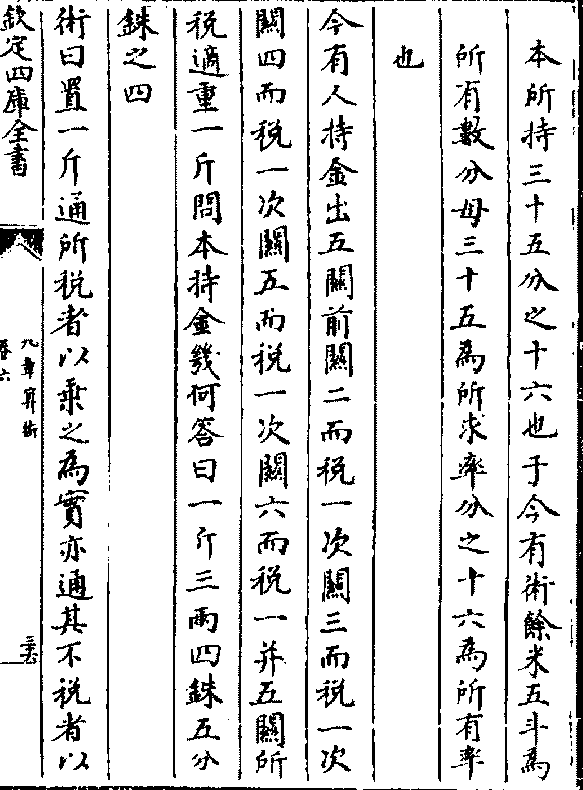 本所持三十五分之十六也于今有術餘米五斗為
所有數分母三十五為所求率分之十六為所有率
也
今有人持金出五關前關二而税一次關三而税一次
關四而税一次關五而税一次關六而税一并五關所
税適重一斤問本持金幾何答曰一斤三兩四銖五分
銖之四
術曰置一斤通所税者以乘之為實亦通其不税者以
欽定四庫全書
九章算術
卷六
三六